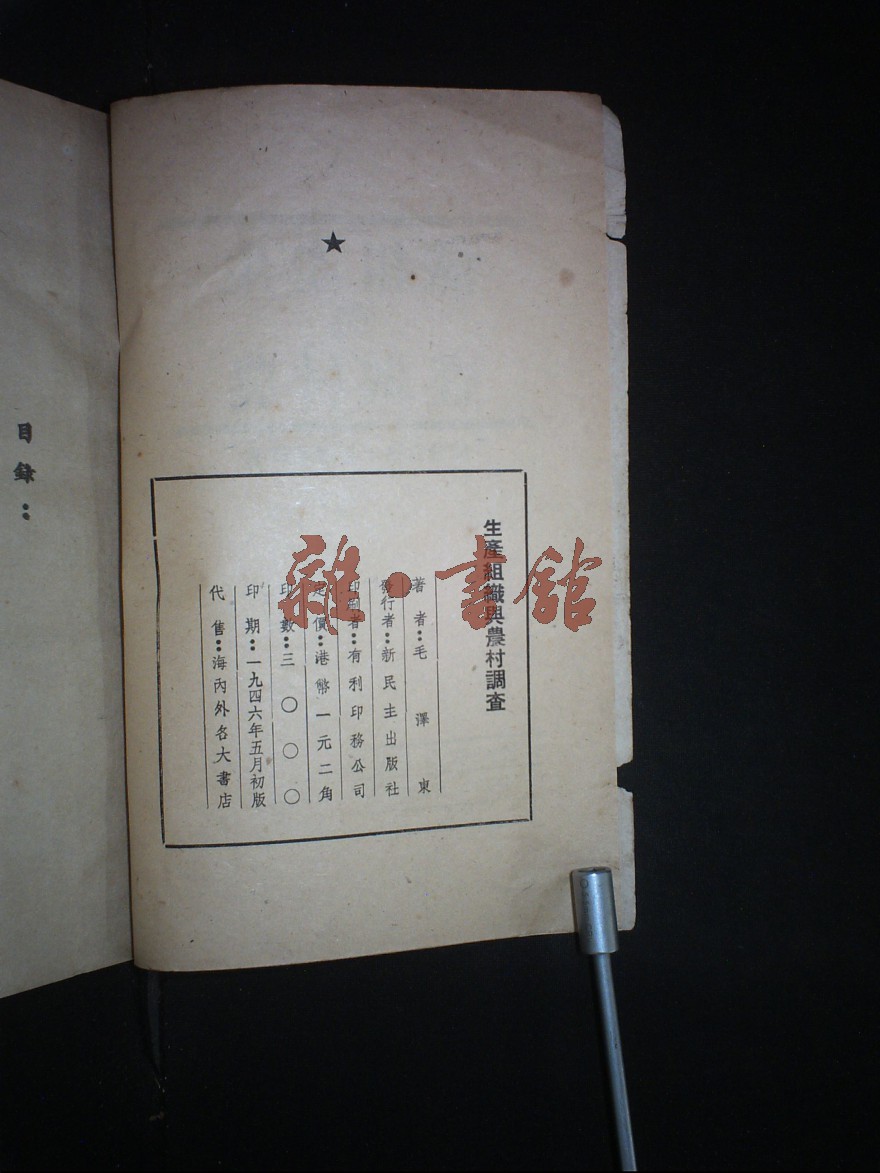 生產組織與農村調查
著者：毛澤東
發行者：新民主出版社
印刷者：有利印務公司
定價：港幣一元二角
印數：三〇〇〇
印期：一九四六年五月初版
代售：海內外名大書店
目錄：
雜·書館